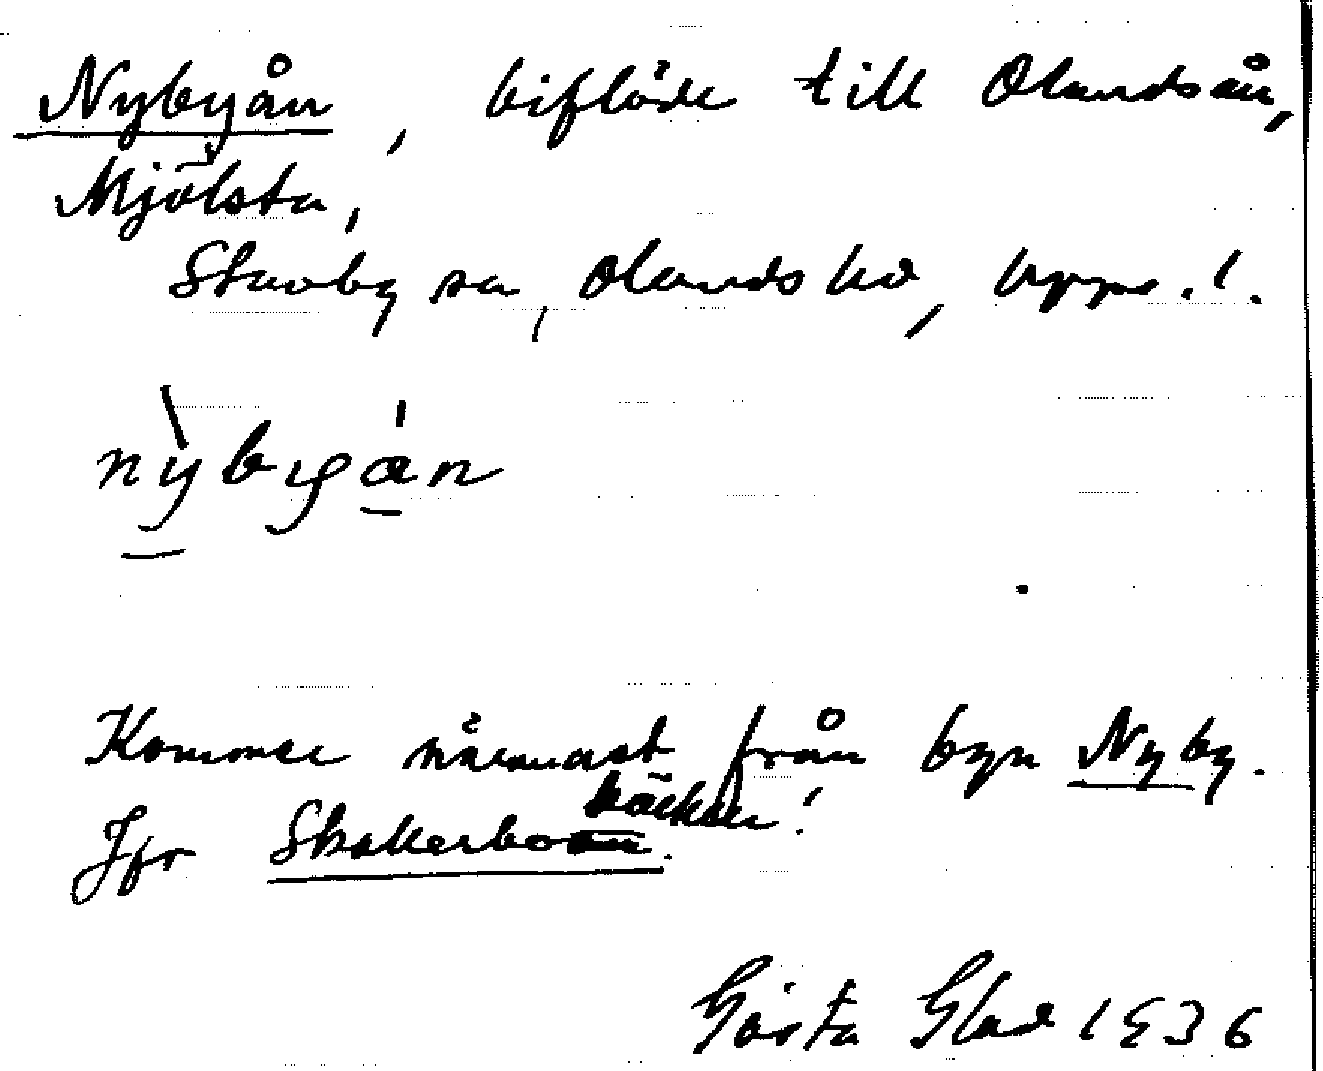 Nybyån, biflöde till Olandsån,
Mjölsta,
Stavby sn, Olands hd, Upps. l.
nỳbyán
Kommer närmast från byn Nyby.
bäcken!
Jfr Skakerboån.
Gösta Glad 1936